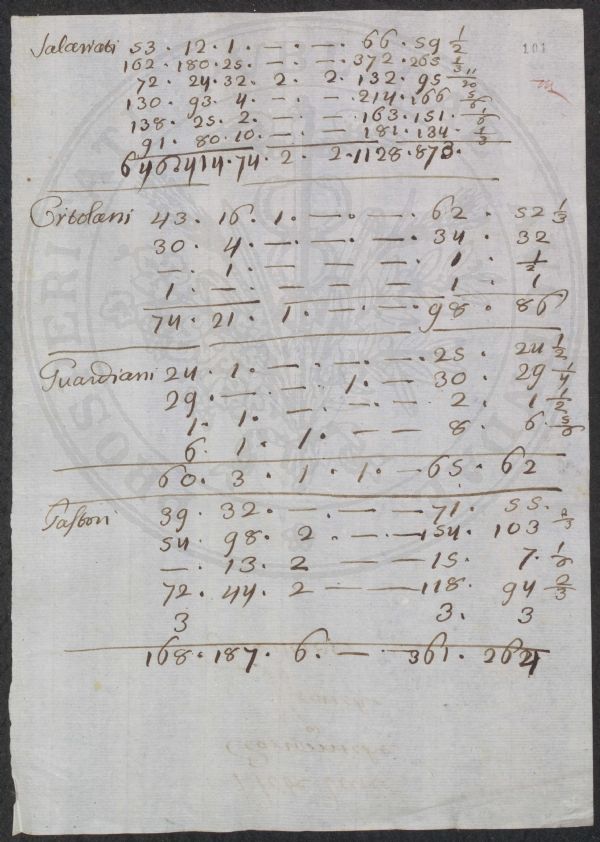 101
Salariati 53 · 12 · 1 · — · — · 66 · 59 1/2
162 · 180 · 25 · — · — · 372 · 265 1/3
72 · 24 · 32 · 2 · 2 · 132 · 95 11/20
130 · 93 · 4 · — · — · 214 · 166 5/6
138 · 25 · 2 · — · — 163 · 151 · 1/6
91 · 80 · 10 · — · — 181 · 134 · 1/3
646 · 414 · 74 · 2 · 2 · 1128 · 873 ·
43 · 16 · 1 · — · — · 62 · 52 1/3
30 · 4 · — · — · — · 34 · 32
— · 1 · — — — · 1 · 1/2
1 · — · — — — 1 · 1
74 · 21 · 1 · — · — · 98 · 86
Guardiani 24 · 1 · — · — · — · 25 · 24 1/2
29 · — · — · 1 · — 30 · 29 1/4
1 · 1 · — · — · — 2 · 1 1/2
6 · 1 · 1 · — — 8 · 6 · 5/6
60 · 3 · 1 · 1 · — 65 · 62
Pastori 39 · 32 · — · — — 71 · 55 ·
54 · 98 · 2 · — · — 154 · 103 2/3
— · 13 · 2 — — 15 · 7 · 1/6
72 · 44 · 2 — — 118 · 94 2/3
3 3 · 3
168 · 187 · 6 · — · 361 · 264